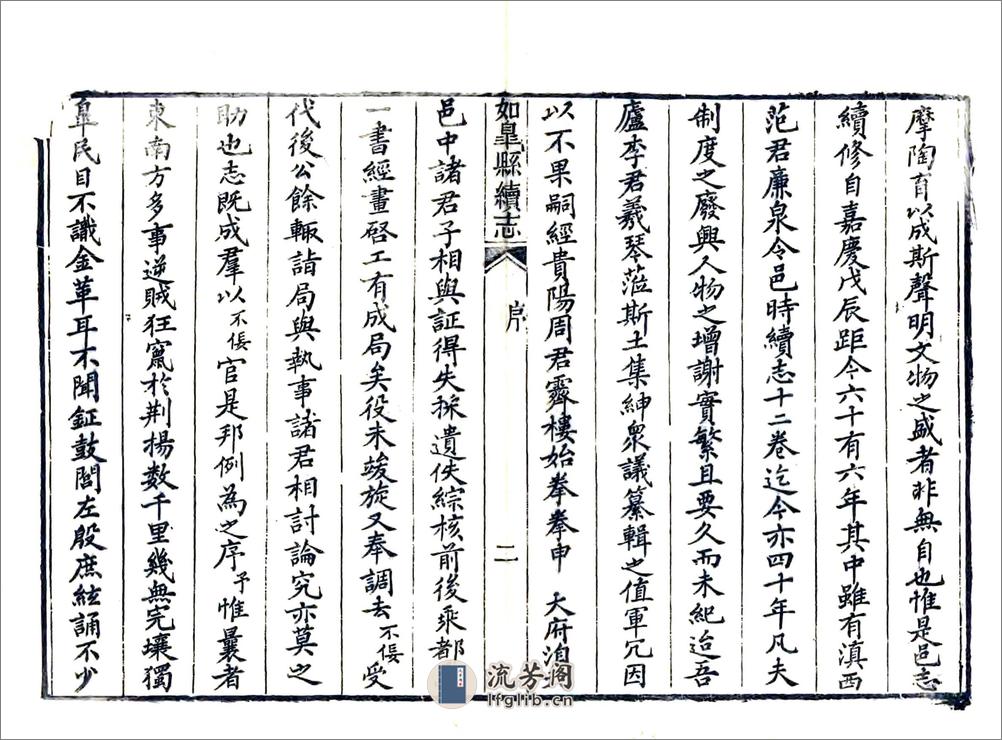 摩陶育以成斯聲明文物之盛者非無自也惟是邑志
續修自嘉慶戊辰距今六十有六年其中雖有滇西
范君廉泉令邑時續志十二卷迄今亦四十年凡夫
制度之廢興人物之增謝實繁且要久而未紀迨吾
廬李君羲琴蒞斯土集紳衆議纂輯之值軍冗因
以不果嗣經貴陽周君霽樓始拳拳申 大府洎
如臯縣續志 序 二
邑中諸君子相與証得失採遺佚綜核前後乘都
一書經畫啓工有成局矣役未竣旋又奉調去不佞受
代後公餘輙詣局與執事諸君相討論究亦莫之
助也志既成羣以不佞官是邦例為之序予惟曩者
東南方多事逆賊狂竄於荆揚数千里幾無完壤獨
臯民目不識金革耳不聞鉦鼓閭左殷庶絃誦不少
流芳阁
lfglib.cn